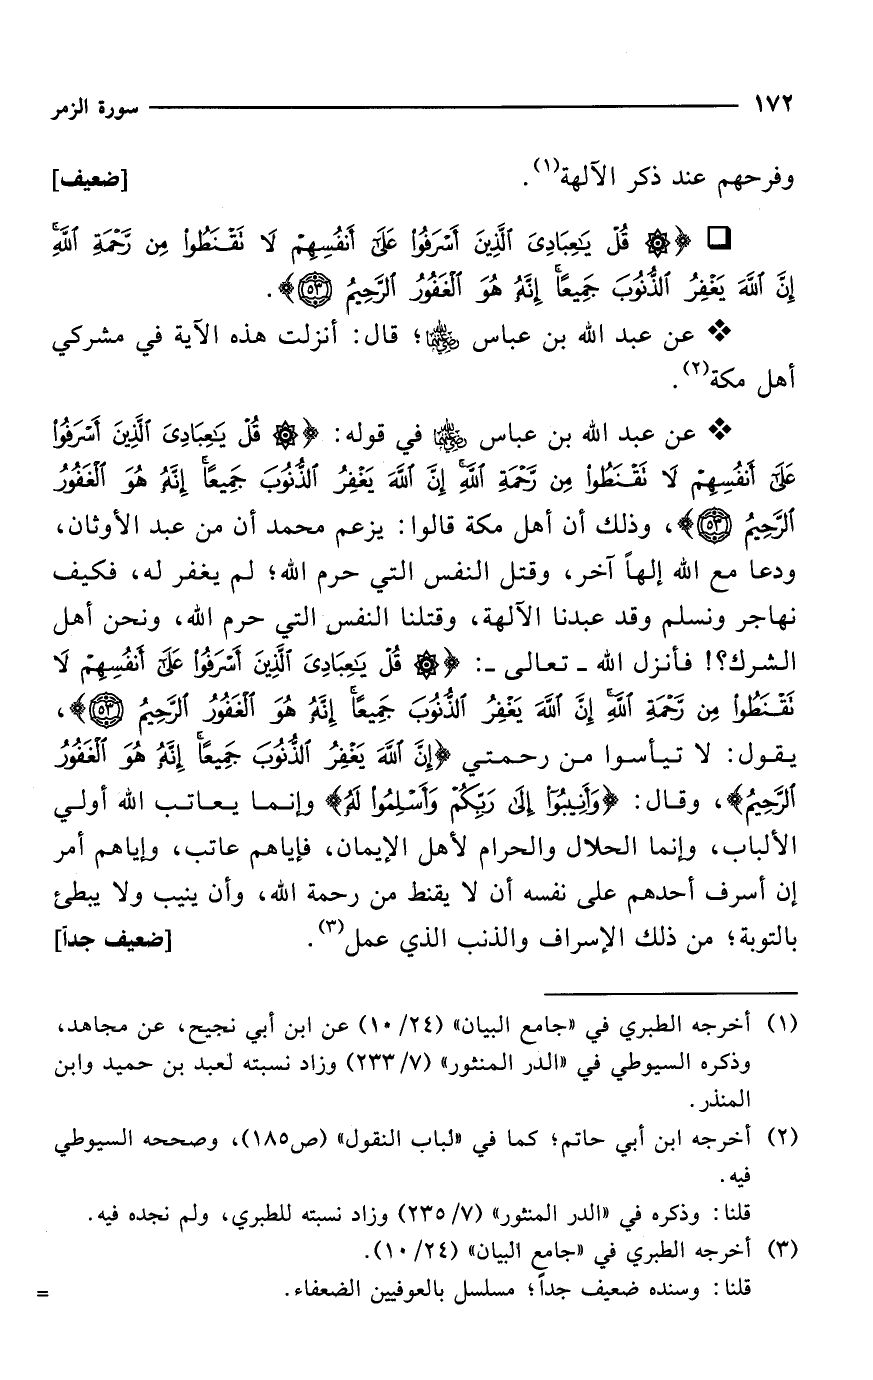 ١٧٢ سورة الزمر
وفرحهم عند ذكر الآلهة(١). [ضعيف]
❑ ﴿۞ قُلْ يَٰعِبَادِىَ ٱلَّذِينَ أَسْرَفُوا۟ عَلَىٰٓ أَنفُسِهِمْ لَا تَقْنَطُوا۟ مِن رَّحْمَةِ ٱللَّهِ ۚ
إِنَّ ٱللَّهَ يَغْفِرُ ٱلذُّنُوبَ جَمِيعًا ۚ إِنَّهُۥ هُوَ ٱلْغَفُورُ ٱلرَّحِيمُ ﴿٥٣﴾﴾.
❖ عن عبد الله بن عباس رضي الله عنهما؛ قال: أنزلت هذه الآية في مشركي
أهل مكة(٢).
❖ عن عبد الله بن عباس رضي الله عنهما في قوله: ﴿۞ قُلْ يَٰعِبَادِىَ ٱلَّذِينَ أَسْرَفُوا۟
عَلَىٰٓ أَنفُسِهِمْ لَا تَقْنَطُوا۟ مِن رَّحْمَةِ ٱللَّهِ ۚ إِنَّ ٱللَّهَ يَغْفِرُ ٱلذُّنُوبَ جَمِيعًا ۚ إِنَّهُۥ هُوَ ٱلْغَفُورُ
ٱلرَّحِيمُ ﴿٥٣﴾﴾، وذلك أن أهل مكة قالوا: يزعم محمد أن من عبد الأوثان،
ودعا مع الله إلهاً آخر، وقتل النفس التي حرم الله؛ لم يغفر له، فكيف
نهاجر ونسلم وقد عبدنا الآلهة، وقتلنا النفس التي حرم الله، ونحن أهل
الشرك؟! فأنزل الله ـ تعالى ـ: ﴿۞ قُلْ يَٰعِبَادِىَ ٱلَّذِينَ أَسْرَفُوا۟ عَلَىٰٓ أَنفُسِهِمْ لَا
تَقْنَطُوا۟ مِن رَّحْمَةِ ٱللَّهِ ۚ إِنَّ ٱللَّهَ يَغْفِرُ ٱلذُّنُوبَ جَمِيعًا ۚ إِنَّهُۥ هُوَ ٱلْغَفُورُ ٱلرَّحِيمُ ﴿٥٣﴾﴾،
يقول: لا تيأسوا من رحمتي ﴿إِنَّ ٱللَّهَ يَغْفِرُ ٱلذُّنُوبَ جَمِيعًا ۚ إِنَّهُۥ هُوَ ٱلْغَفُورُ
ٱلرَّحِيمُ﴾، وقال: ﴿وَأَنِيبُوٓا۟ إِلَىٰ رَبِّكُمْ وَأَسْلِمُوا۟ لَهُۥ﴾ وإنما يعاتب الله أولي
الألباب، وإنما الحلال والحرام لأهل الإيمان، فإياهم عاتب، وإياهم أمر
إن أسرف أحدهم على نفسه أن لا يقنط من رحمة الله، وأن ينيب ولا يبطئ
بالتوبة؛ من ذلك الإسراف والذنب الذي عمل(٣). [ضعيف جداً]
(١) أخرجه الطبري في «جامع البيان» (٢٤/ ١٠) عن ابن أبي نجيح، عن مجاهد،
وذكره السيوطي في «الدر المنثور» (٧/ ٢٣٣) وزاد نسبته لعبد بن حميد وابن
المنذر.
(٢) أخرجه ابن أبي حاتم؛ كما في «لباب النقول» (ص١٨٥)، وصححه السيوطي
فيه.
قلنا: وذكره في «الدر المنثور» (٧/ ٢٣٥) وزاد نسبته للطبري، ولم نجده فيه.
(٣) أخرجه الطبري في «جامع البيان» (٢٤/ ١٠).
قلنا: وسنده ضعيف جداً؛ مسلسل بالعوفيين الضعفاء. =